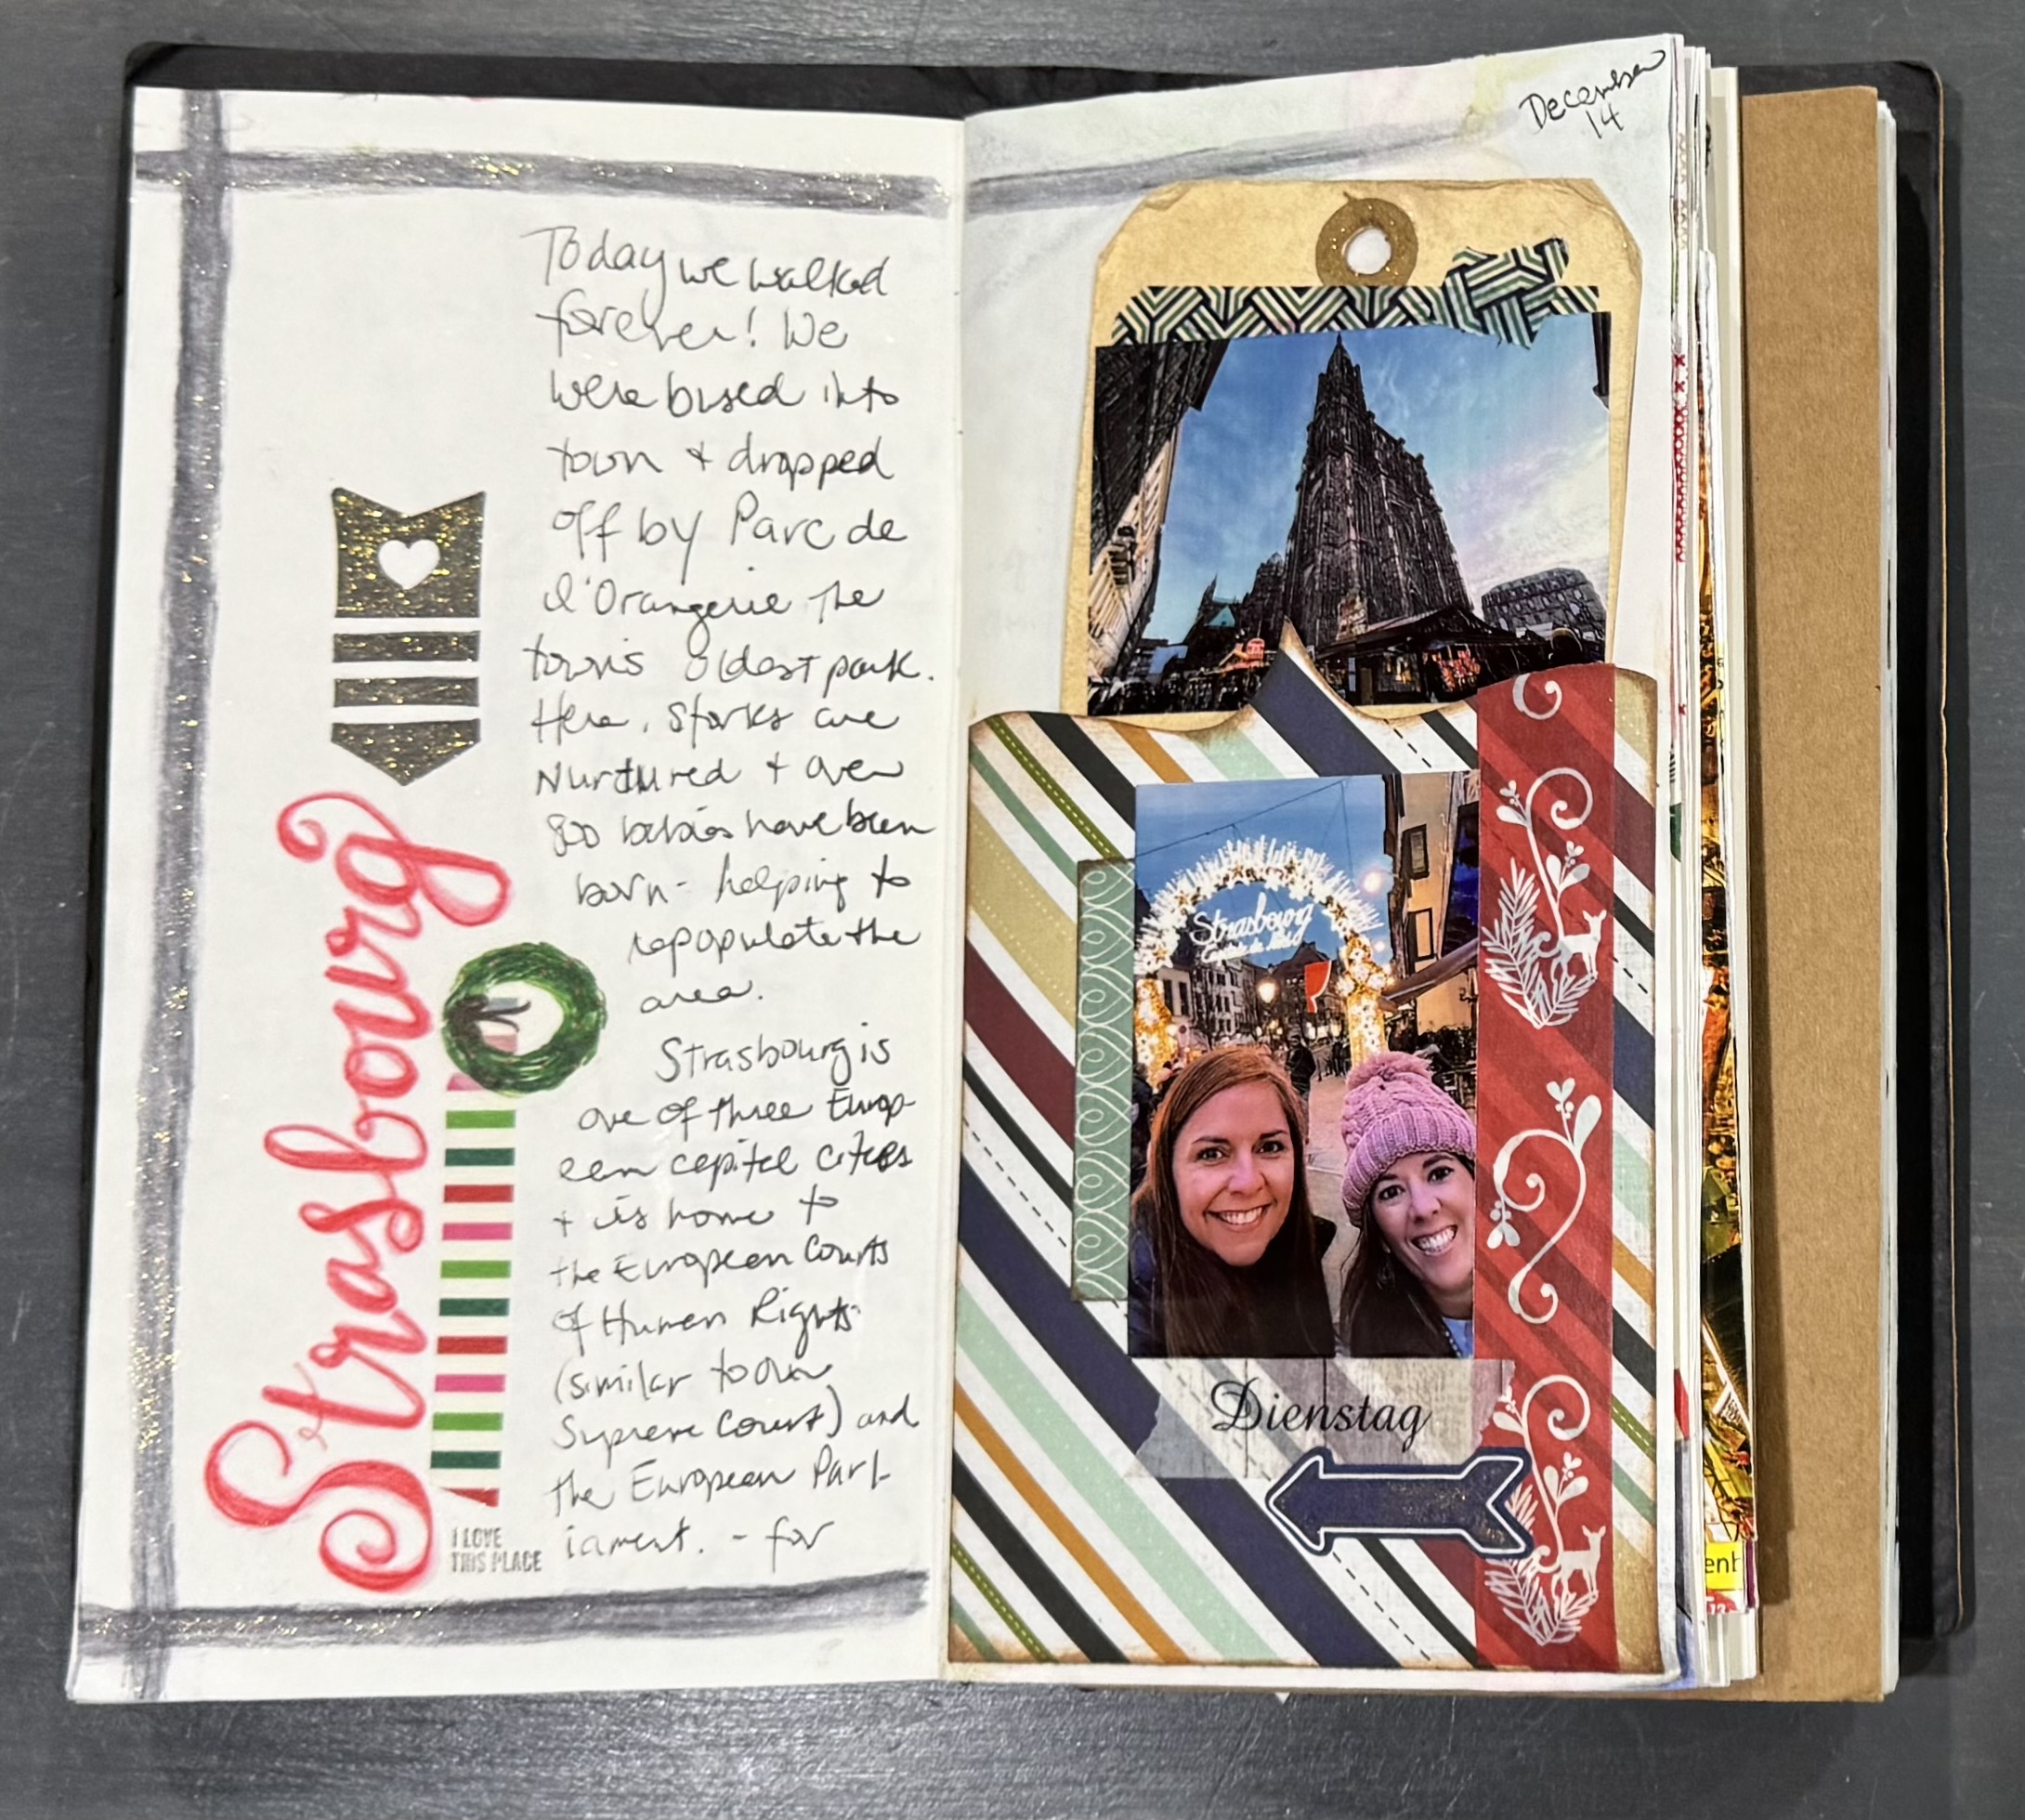 Strasbourg
I LOVE
THIS PLACE
Today we walked
forever! We
were bused into
town + dropped
off by Parc de
l'Orangerie the
town's oldest park.
Here, storks are
Nurtured + over
800 babies have been
born - helping to
repopulate the
area.
Strasbourg is
one of three Europ-
ean capital cities
+ is home to
the European Courts
of Human Rights
(similar to our
Supreme Court) and
the European Parl-
iament. - for
December
14
Strasbourg
Capitale de Noël
Dienstag
enb